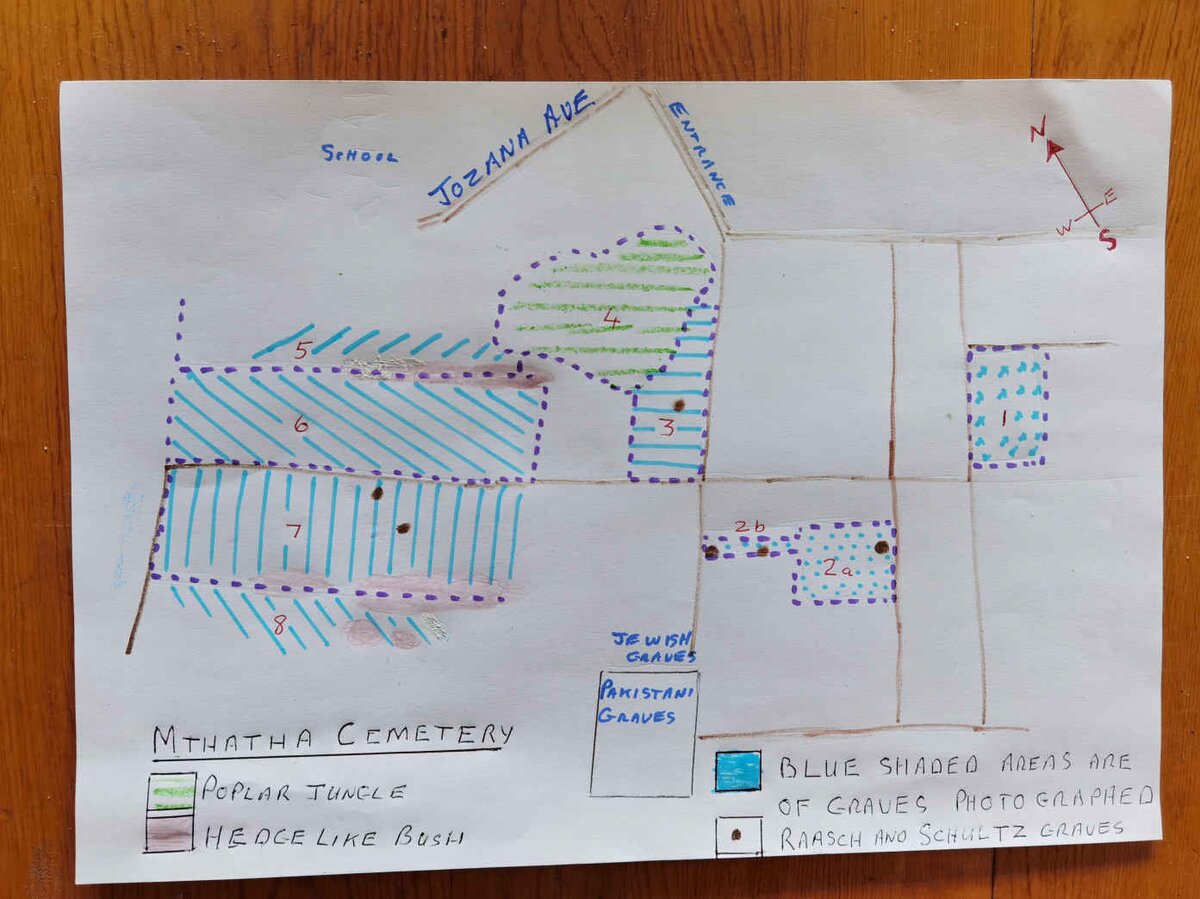 JOZANA AVE
ENTRANCE
SCHOOL
N
E
W
S
4
5
1
6
3
7
2b
2a
8
JEWISH
GRAVES
PAKISTANI
GRAVES
MTHATHA CEMETERY
POPLAR JUNGLE
HEDGE LIKE BUSH
BLUE SHADED AREAS ARE
OF GRAVES PHOTOGRAPHED
RAASCH AND SCHULTZ GRAVES